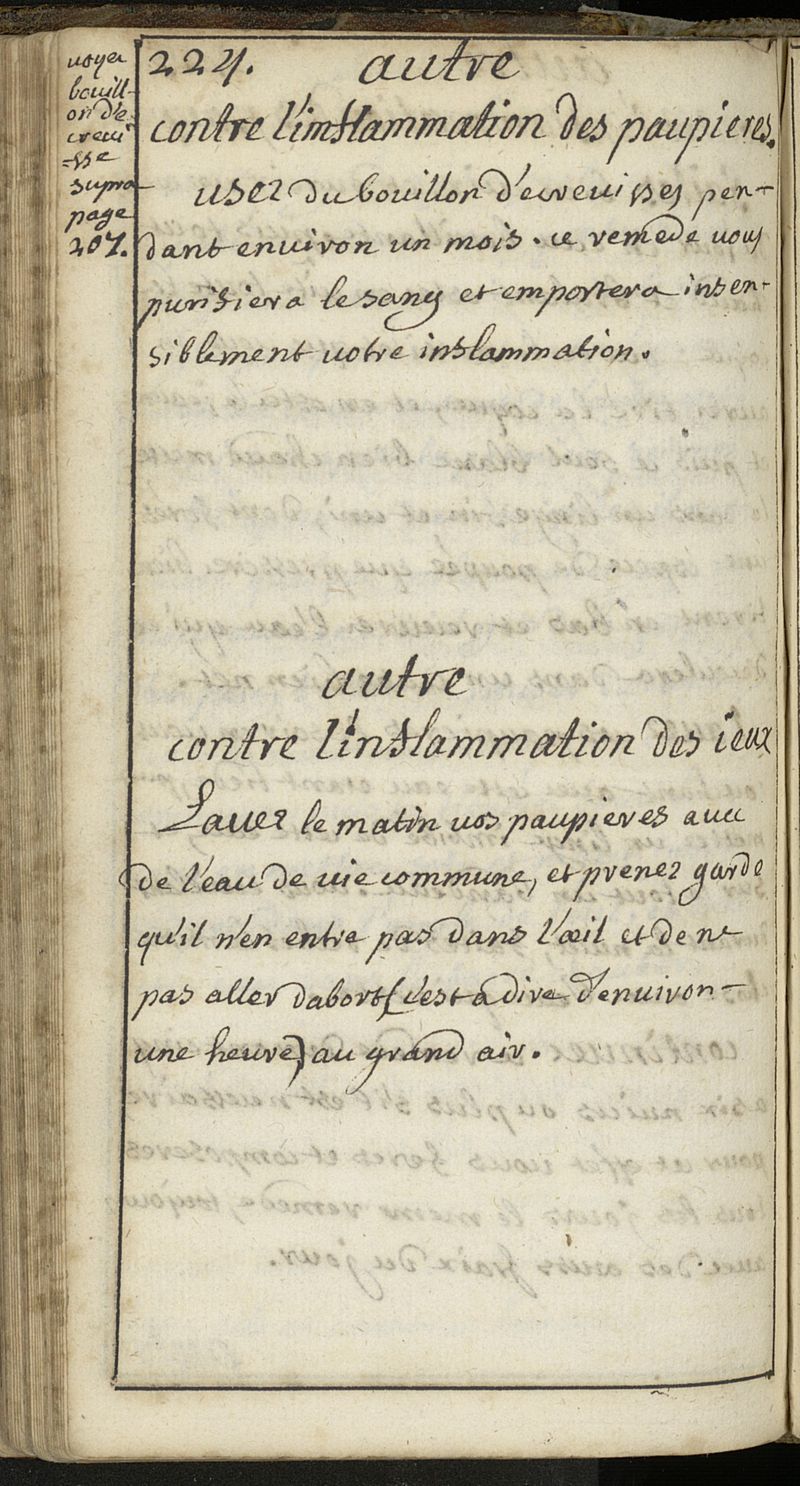 voyez
bouill-
on d'e
crevi
-sse
supra
page
207.
224. autre
contre l'inflammation des paupieres.
usez du bouillon d'ecrevisses pen-
dant environ un mois. ce remede vous
purifiera le sang et emportera insen-
siblement votre inflammation.
autre
contre l'inflammation des ieux
Lavez le matin vos paupieres avec
de l'eau de vie commune, et prenez garde
qu'il n'en entre pas dans l'œil et de ne
pas aller dabort (c'est a dire d'environ-
une heure) au grand air.